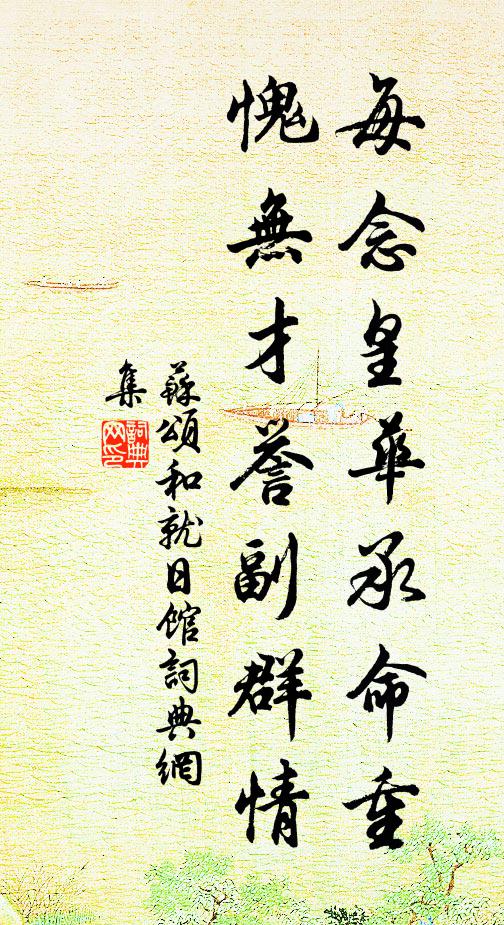 每念皇華承命重
愧無才誉副群情
蘇頌和就日館詞典網
集
詞典
网印